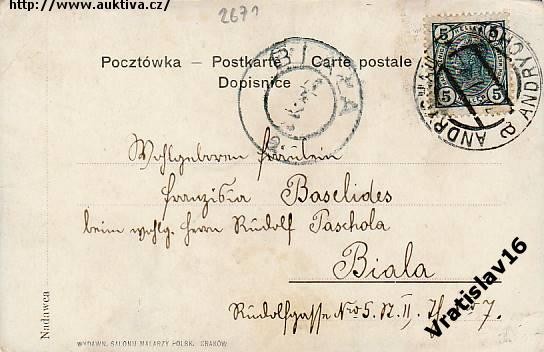 http://www.auktiva.cz/
2671
Pocztówka – Postkarte – Carte postale
Dopisnice
BIALA
5 5
5 5
T
ANDRYCHÓW
ANDRYCH
Wohlgeboren Fräulein
Franziska Baselides
beim wohlg. Herrn Rudolf Paschola
Biala
Rudolfgasse No 5. St. II. Th. 7.
Nadawca
WYDAWN. SALONU MALARZY POLSK. KRAKÓW
Vratislav16